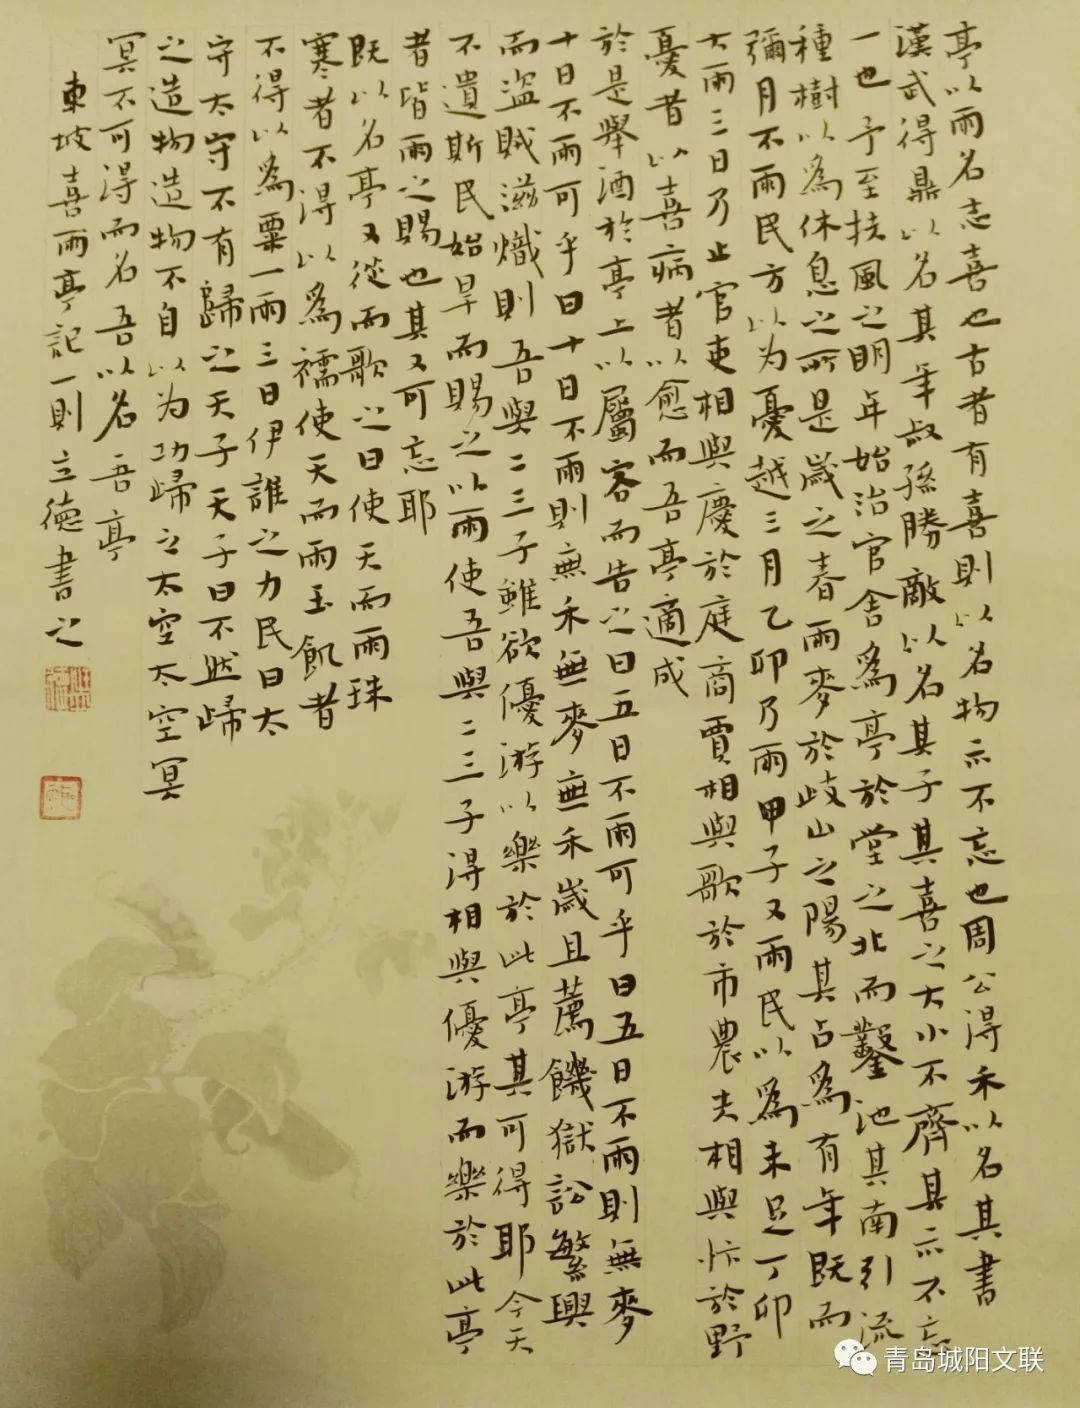 亭以雨名志喜也古者有喜則以名物示不忘也周公得禾以名其書
漢武得鼎以名其年叔孫勝敵以名其子其喜之大小不齊其示不忘
一也予至扶風之明年始治官舍爲亭於堂之北而鑿池其南引流
種樹以爲休息之所是歲之春雨麥於岐山之陽其占爲有年既而
彌月不雨民方以为憂越三月乙卯乃雨甲子又雨民以爲未足丁卯
大雨三日乃止官吏相與慶於庭商賈相與歌於市農夫相與忭於野
憂者以喜病者以愈而吾亭適成
於是舉酒於亭上以屬客而告之曰五日不雨可乎曰五日不雨則無麥
十日不雨可乎曰十日不雨則無禾無麥無禾歲且薦饑獄訟繁興
而盜賊滋熾則吾與二三子雖欲優游以樂於此亭其可得耶今天
不遺斯民始旱而賜之以雨使吾與二三子得相與優游而樂於此亭
者皆雨之賜也其又可忘耶
既以名亭又從而歌之曰使天而雨珠
寒者不得以爲襦使天而雨玉飢者
不得以爲粟一雨三日伊誰之力民曰太
守太守不有歸之天子天子曰不然歸
之造物造物不自以为功歸之太空太空冥
冥不可得而名吾以名吾亭
東坡喜雨亭記一則立德書之
青岛城阳文联